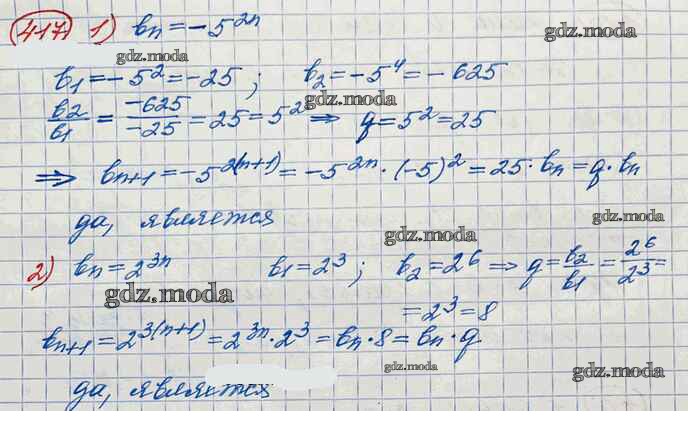 417. 1) bₙ = -5²ⁿ
gdz.moda
gdz.moda
b₁ = -5² = -25 ; b₂ = -5⁴ = -625
gdz.moda
b₂/b₁ = -625/-25 = 25 = 5² ⇒ q = 5² = 25
gdz.moda
⇒ bₙ₊₁ = -5²⁽ⁿ⁺¹⁾ = -5²ⁿ · (-5)² = 25 · bₙ = q · bₙ
да, является
gdz.moda
gdz.moda
2) bₙ = 2³ⁿ b₁ = 2³ ; b₂ = 2⁶ ⇒ q = b₂/b₁ = 2⁶/2³ =
gdz.moda
= 2³ = 8
bₙ₊₁ = 2³⁽ⁿ⁺¹⁾ = 2³ⁿ · 2³ = bₙ · 8 = bₙ · q
gdz.moda
gdz.moda
да, является